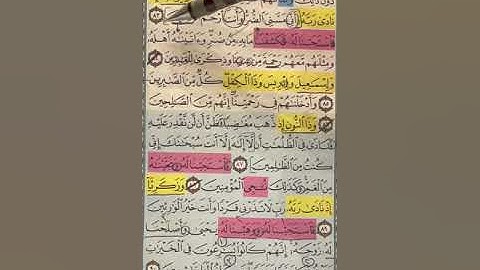 دُونَ ذَٰلِكَ
نَادَىٰ رَبَّهُۥٓ أَنِّي مَسَّنِيَ ٱلضُّرُّ وَأَنتَ أَرْحَمُ ٨٣
فَٱسْتَجَبْنَا لَهُۥ فَكَشَفْنَا مَا بِهِۦ مِن ضُرٍّ وَءَاتَيْنَٰهُ أَهْلَهُۥ
وَمِثْلَهُم مَّعَهُمْ رَحْمَةً مِّنْ عِندِنَا وَذِكْرَىٰ لِلْعَٰبِدِينَ
وَإِسْمَٰعِيلَ وَإِدْرِيسَ وَذَا ٱلْكِفْلِ كُلٌّ مِّنَ ٱلصَّٰبِرِينَ
٨٥ وَأَدْخَلْنَٰهُمْ فِي رَحْمَتِنَآ إِنَّهُم مِّنَ ٱلصَّٰلِحِينَ
٨٦ وَذَا ٱلنُّونِ إِذ ذَّهَبَ مُغَٰضِبًا فَظَنَّ أَن لَّن نَّقْدِرَ عَلَيْهِ
فَنَادَىٰ فِي ٱلظُّلُمَٰتِ أَن لَّآ إِلَٰهَ إِلَّآ أَنتَ سُبْحَٰنَكَ إِنِّي
كُنتُ مِنَ ٱلظَّٰلِمِينَ ٨٧ فَٱسْتَجَبْنَا لَهُۥ وَنَجَّيْنَٰهُ
مِنَ ٱلْغَمِّ وَكَذَٰلِكَ نُۨجِي ٱلْمُؤْمِنِينَ ٨٨ وَزَكَرِيَّآ
إِذْ نَادَىٰ رَبَّهُۥ رَبِّ لَا تَذَرْنِي فَرْدًا وَأَنتَ خَيْرُ ٱلْوَٰرِثِينَ
٨٩ فَٱسْتَجَبْنَا لَهُۥ وَوَهَبْنَا لَهُۥ يَحْيَىٰ وَأَصْلَحْنَا
لَهُۥ زَوْجَهُۥٓ إِنَّهُمْ كَانُوا۟ يُسَٰرِعُونَ فِي ٱلْخَيْرَٰتِ